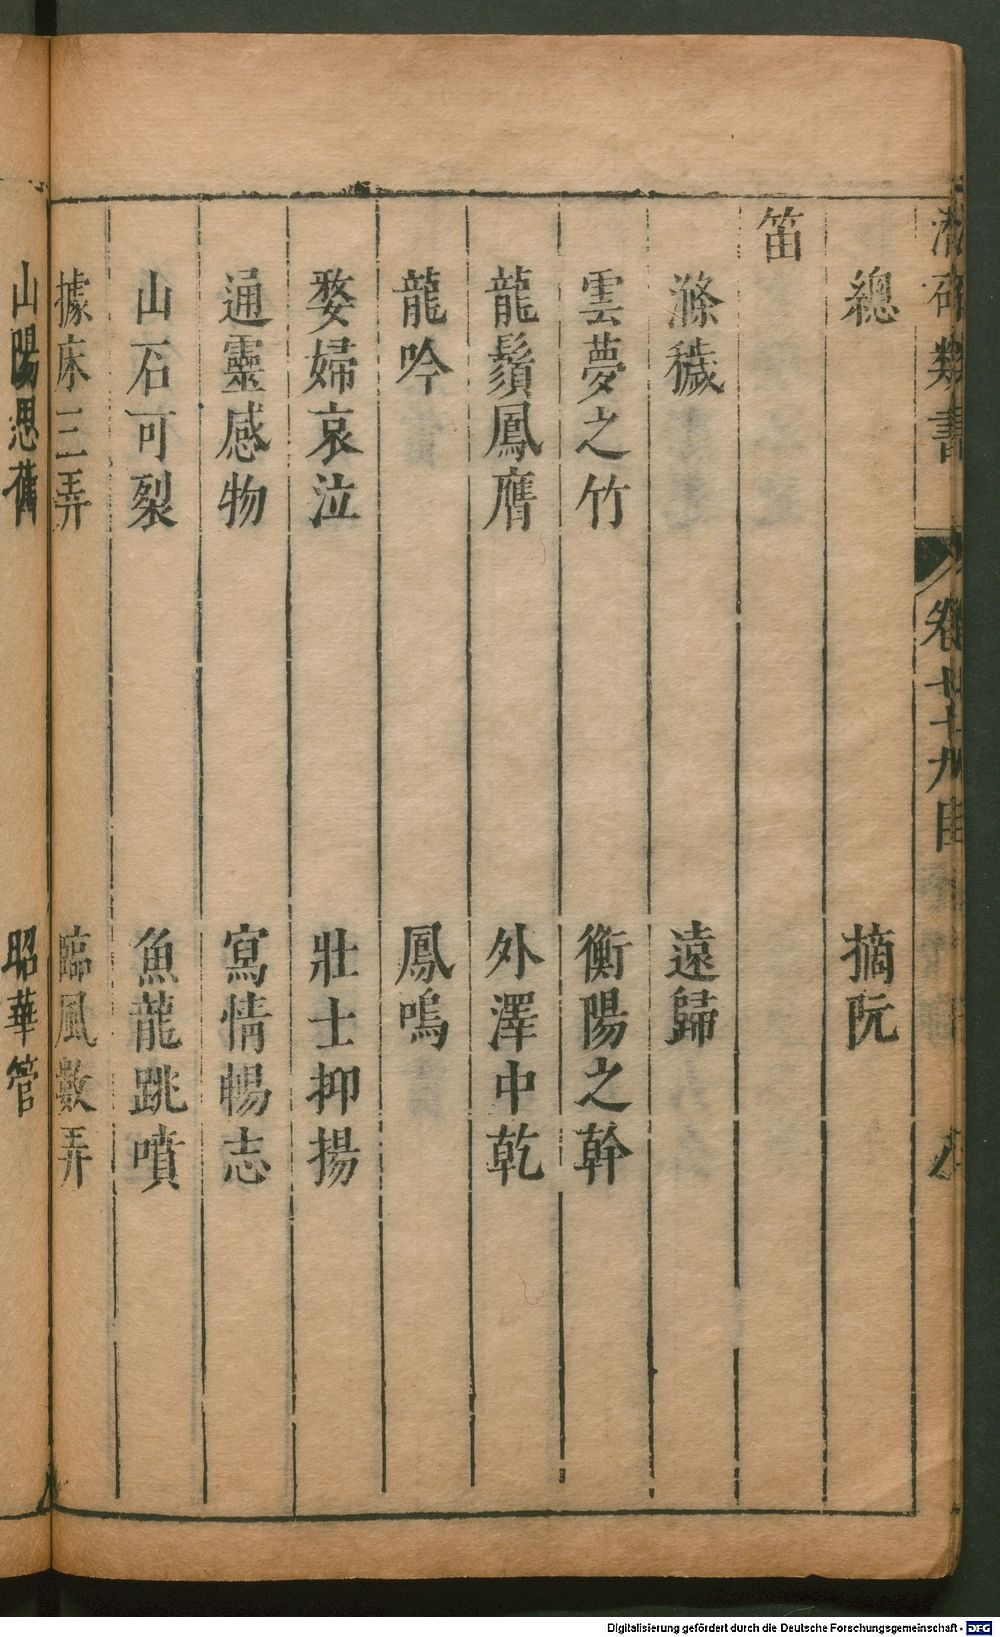 類書
卷廿九目
總 摘阮
笛
滌穢 遠歸
雲夢之竹 衡陽之幹
龍鬚鳳膺 外澤中乾
龍吟 鳳鳴
婺婦哀泣 壯士抑揚
通靈感物 寫情暢志
山石可裂 魚龍跳噴
據床三弄 臨風數弄
山陽思舊 昭華管
Digitalisierung gefördert durch die Deutsche Forschungsgemeinschaft - DFG